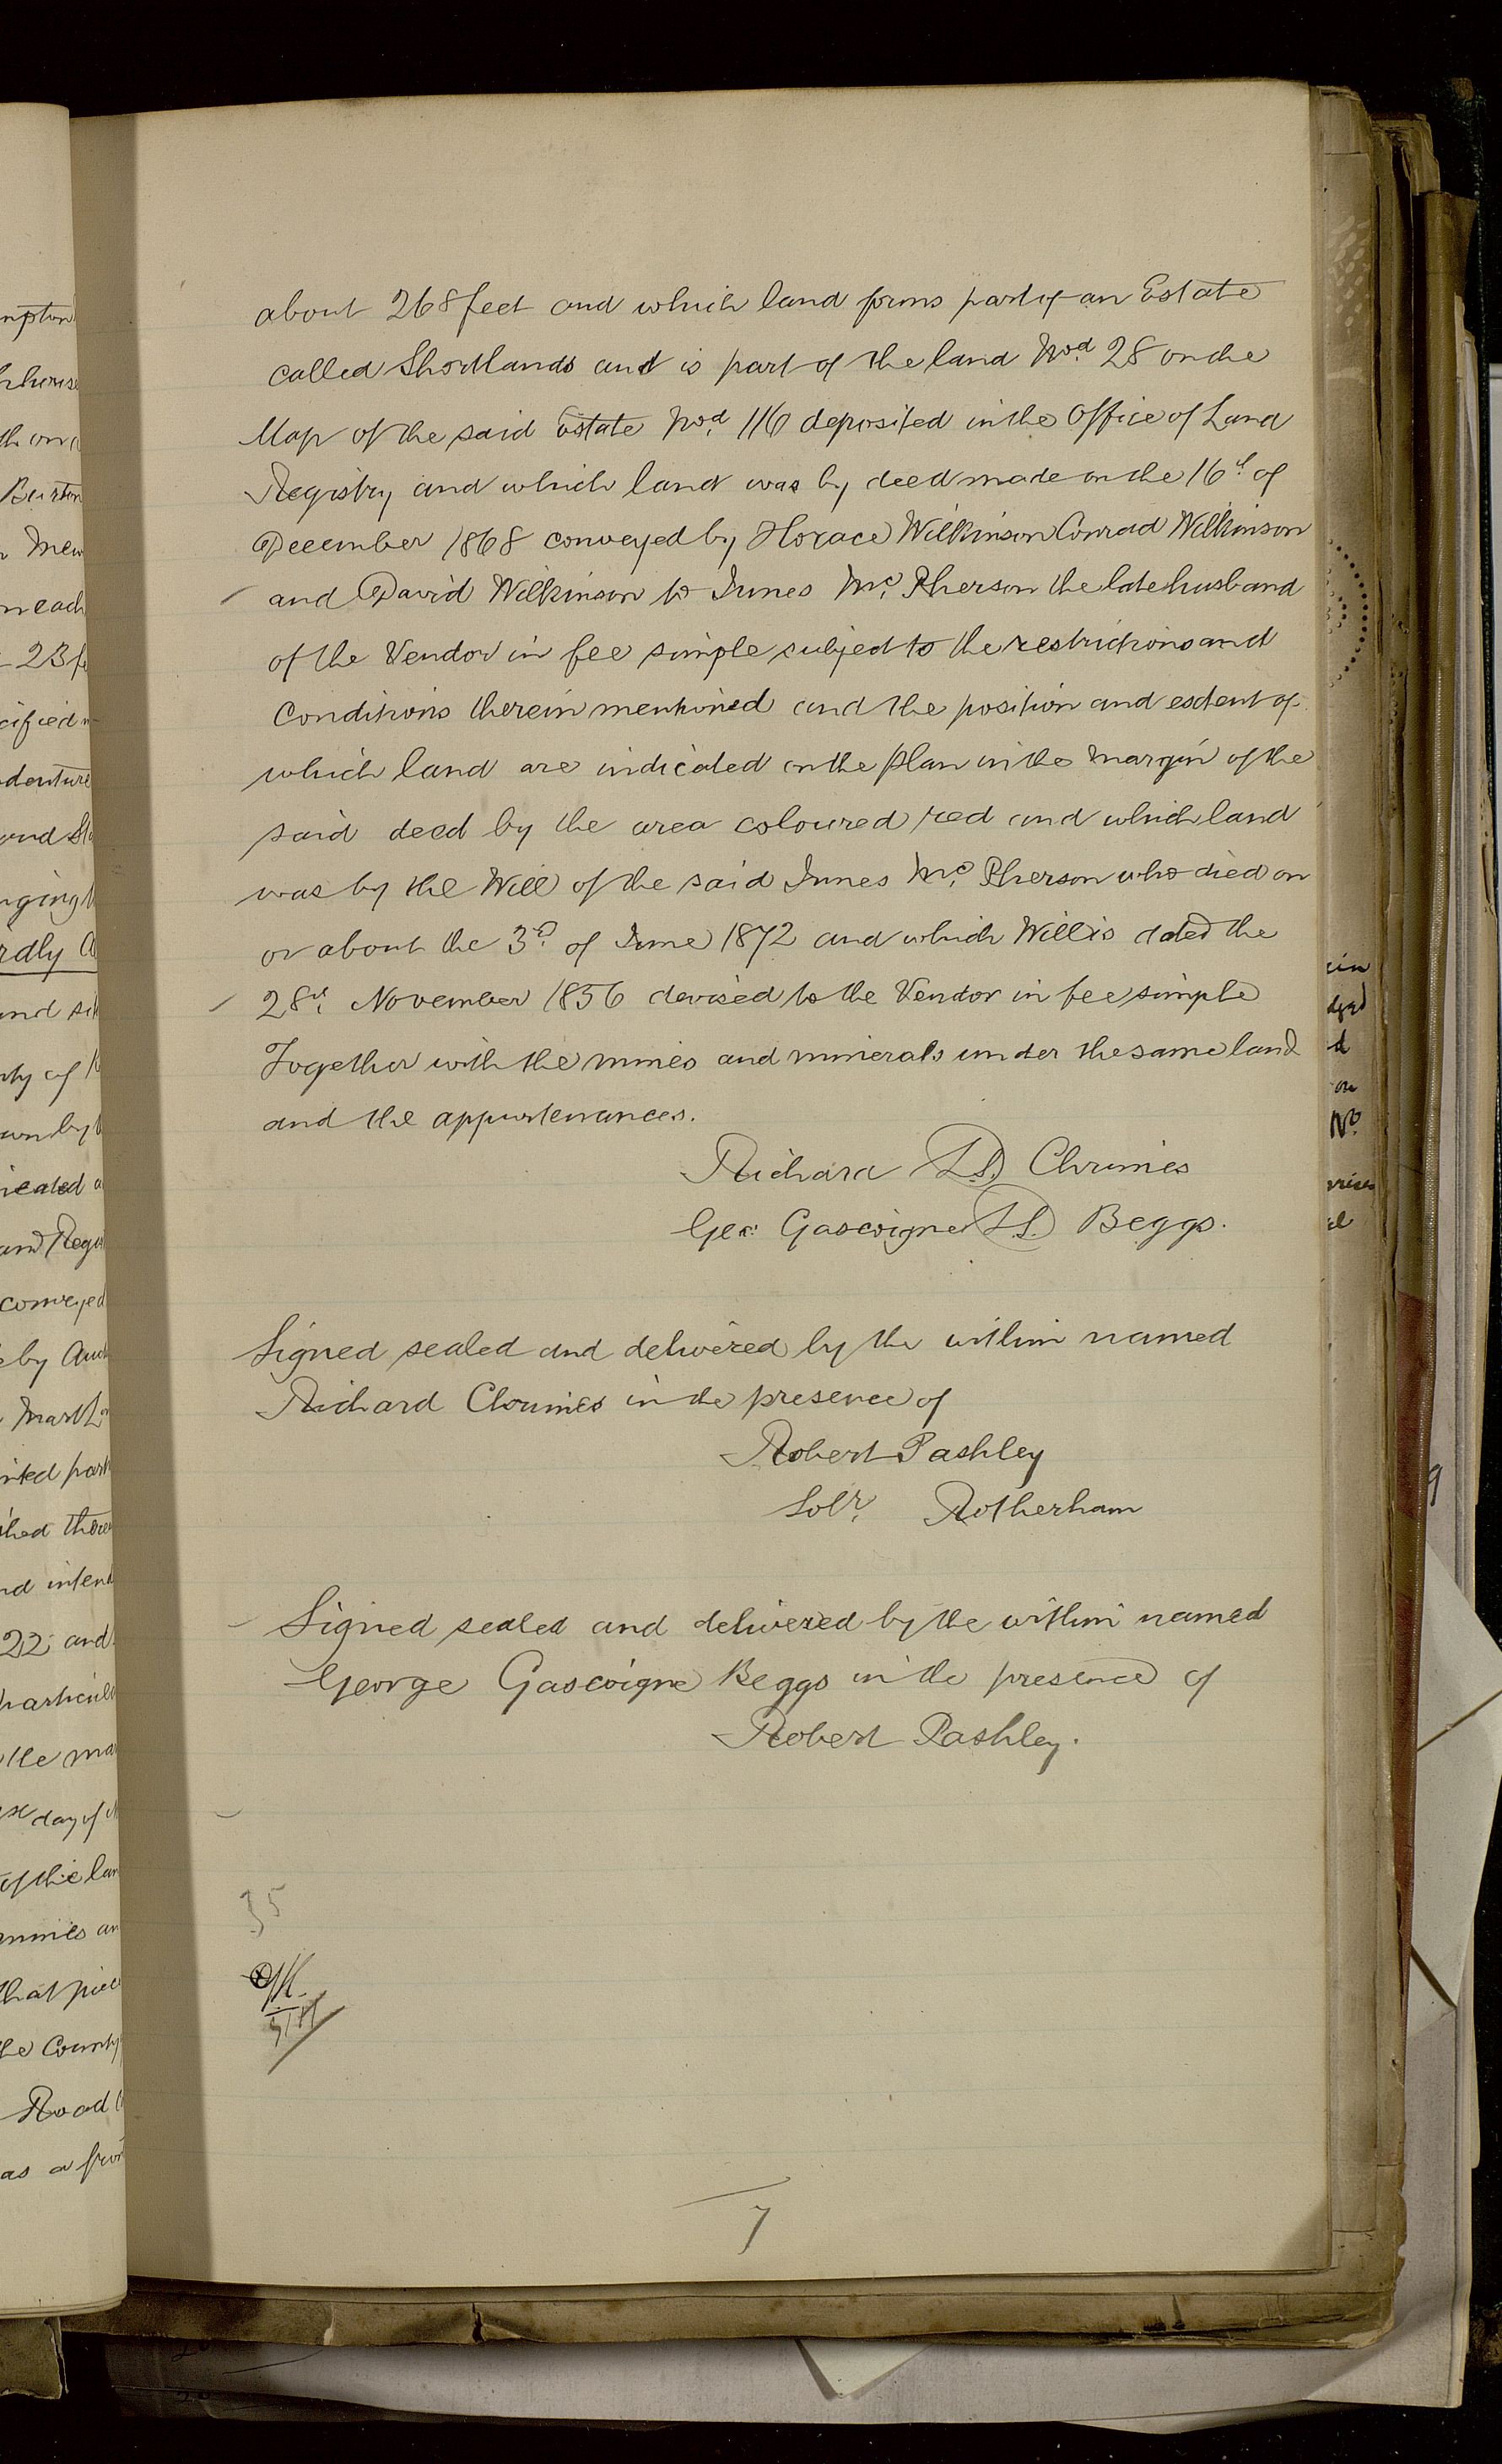 about 268 feet and which land forms part of an Estate
called Shortlands and is part of the land No.d 28 on the
Map of the said Estate No.d 116 deposited in the Office of Land
Registry and which land was by deed made on the 16th of
December 1868 conveyed by Horace Wilkinson Conrad Wilkinson
and David Wilkinson to Innes Mc. Pherson the late husband
of the Vendor in fee simple subject to the restrictions and
Conditions therein mentioned and the position and extent of
which land are indicated on the Plan in the margin of the
said deed by the area coloured red and which land
was by the Will of the said Innes Mc. Pherson who died on
or about the 3rd. of June 1872 and which Will is dated the
28th. November 1856 devised to the Vendor in fee simple
Together with the mines and minerals under the same land
and the appurtenances.
Richard L.S. Chrimes
Geo: Gascoigne L.S. Beggs.
Signed sealed and delivered by the within named
Richard Chrimes in the presence of
Robert Pashley
Solr. Rotherham
Signed sealed and delivered by the within named
George Gascoigne Beggs in the presence of
Robert Pashley.
35
7